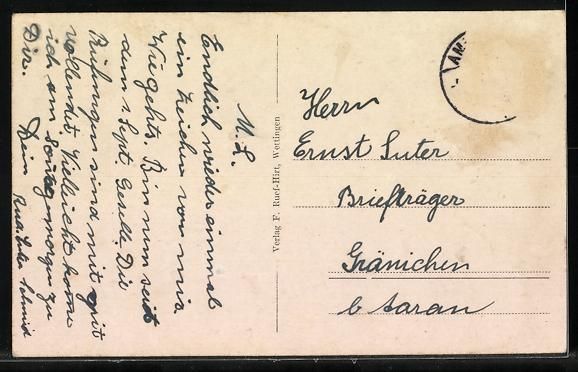 M. L.
Endlich wieder einmal
ein Zeichen von mir.
Wie gehts. Bin nun seit
dem 1. Sept. Geselle. Die
Prüfungen sind mit gut
vollendet. Vielleicht komme
ich am Sonntagmorgen zu
Dir.
Dein
Verlag F. Ruef-Hirt, Wettingen
AM
Herrn
Ernst Suter
Briefträger
Gränichen
b Aarau